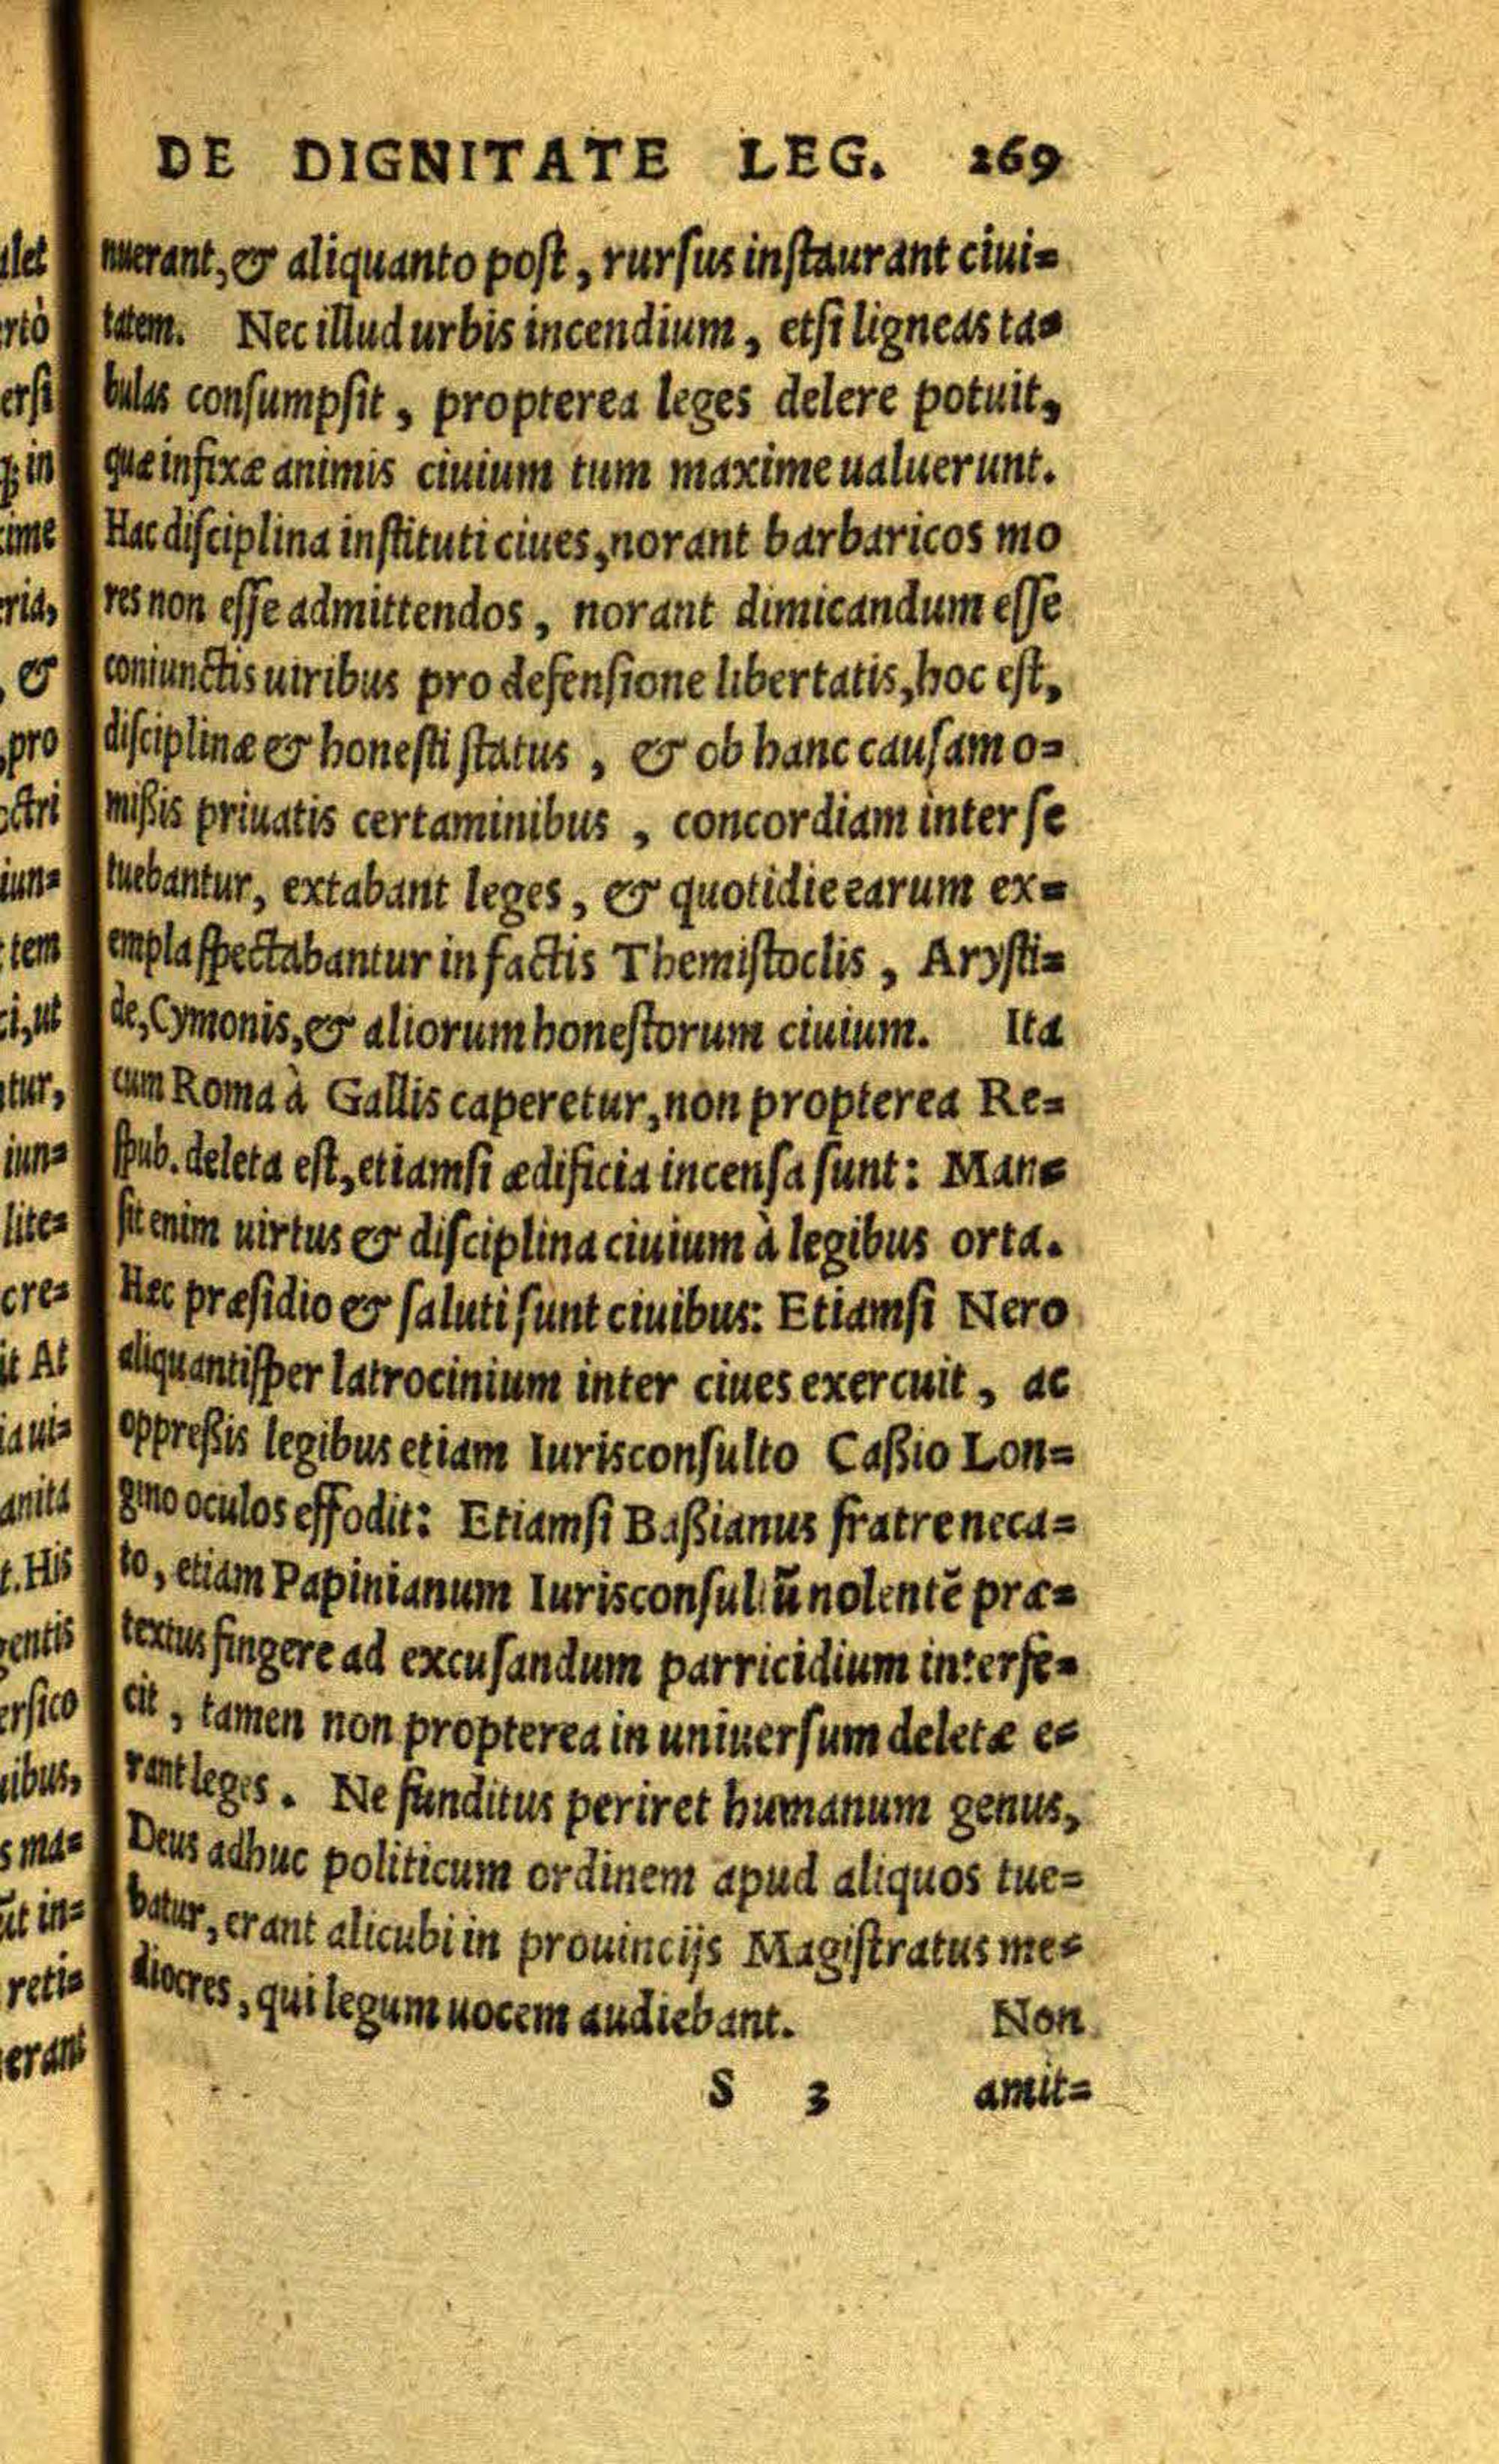 DE DIGNITATE LEG. 269
nuerant, & aliquanto post, rursus instaurant ciui=
tatem. Nec illud urbis incendium, etsi ligneas ta=
bulas consumpsit, propterea leges delere potuit,
quæ infixæ animis ciuium tum maxime ualuerunt.
Hac disciplina instituti ciues, norant barbaricos mo
res non esse admittendos, norant dimicandum esse
coniunctis uiribus pro defensione libertatis, hoc est,
disciplinæ & honesti status, & ob hanc causam o=
mißis priuatis certaminibus, concordiam inter se
tuebantur, extabant leges, & quotidie earum ex=
empla spectabantur in factis Themistoclis, Arysti=
de, Cymonis, & aliorum honestorum ciuium. Ita
cum Roma à Gallis caperetur, non propterea Re=
spub. deleta est, etiamsi ædificia incensa sunt: Man=
sit enim uirtus & disciplina ciuium à legibus orta.
Hæc præsidio & saluti sunt ciuibus: Etiamsi Nero
aliquantisper latrocinium inter ciues exercuit, ac
oppreßis legibus etiam Iurisconsulto Caßio Lon=
gino oculos effodit: Etiamsi Baßianus fratre neca=
to, etiam Papinianum Iurisconsultũ nolentẽ præ=
textus fingere ad excusandum parricidium interfe=
cit, tamen non propterea in uniuersum deletæ e=
rant leges. Ne funditus periret humanum genus,
Deus adhuc politicum ordinem apud aliquos tue=
batur, erant alicubi in prouincijs Magistratus me=
diocres, qui legum uocem audiebant. Non
S 3 amit=